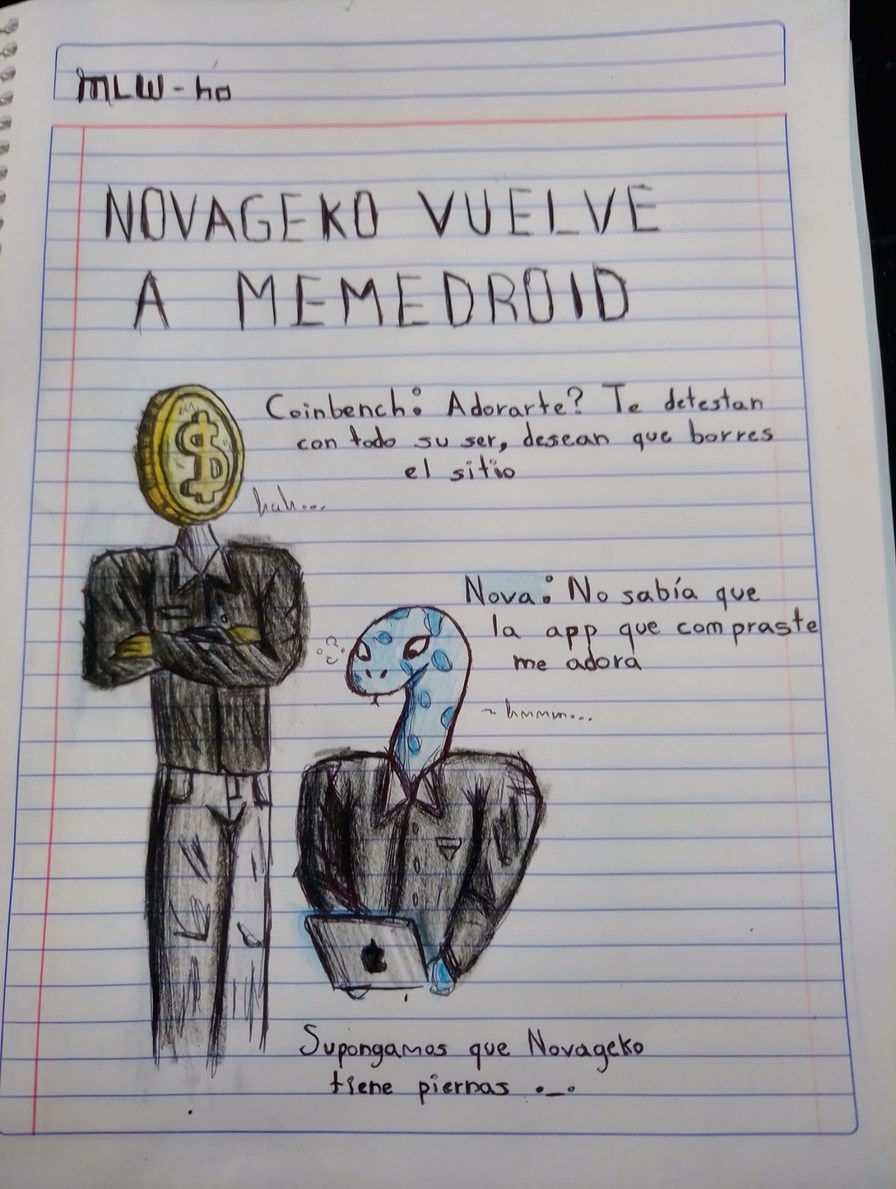 MLW-ho
NOVAGEKO VUELVE
A MEMEDROID
Coinbench: Adorarte? Te detestan
con todo su ser, desean que borres
el sitio
huh...
Nova: No sabía que
la app que compraste
me adora
~hmmm...
Supongamos que Novageko
tiene piernas ._.